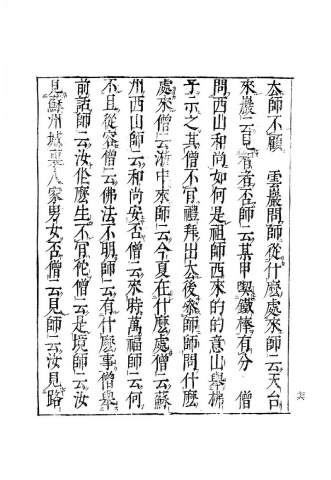 太師不顧　雲巖問師從什麽處來師云天台
來巖云見智者否師云某甲喫鐵棒有分　僧
問西山和尚如何是祖師西來的的意山舉拂
子示之其僧不肯禮拜出去後參師師問什麽
處來僧云浙中來師云今夏在什麽處僧云蘇
州西山師云和尚安否僧云來時萬福師云何
不且從容僧云佛法不明師云有什麽事僧舉
前話師云汝作麽生不肯佗僧云是境師云汝
見蘇州城裏人家男女否僧云見師云汝見路